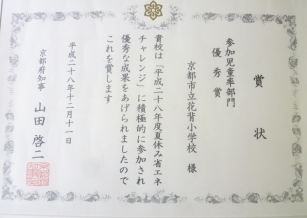 賞状
参加児童率部門
優秀賞
京都市立花背小学校 様
貴校は「平成二十八年度夏休み省エネ
チャレンジ」に積極的に参加され
優秀な成果をあげられましたので
これを賞します
平成二十八年十二月十一日
京都府知事 山田啓二